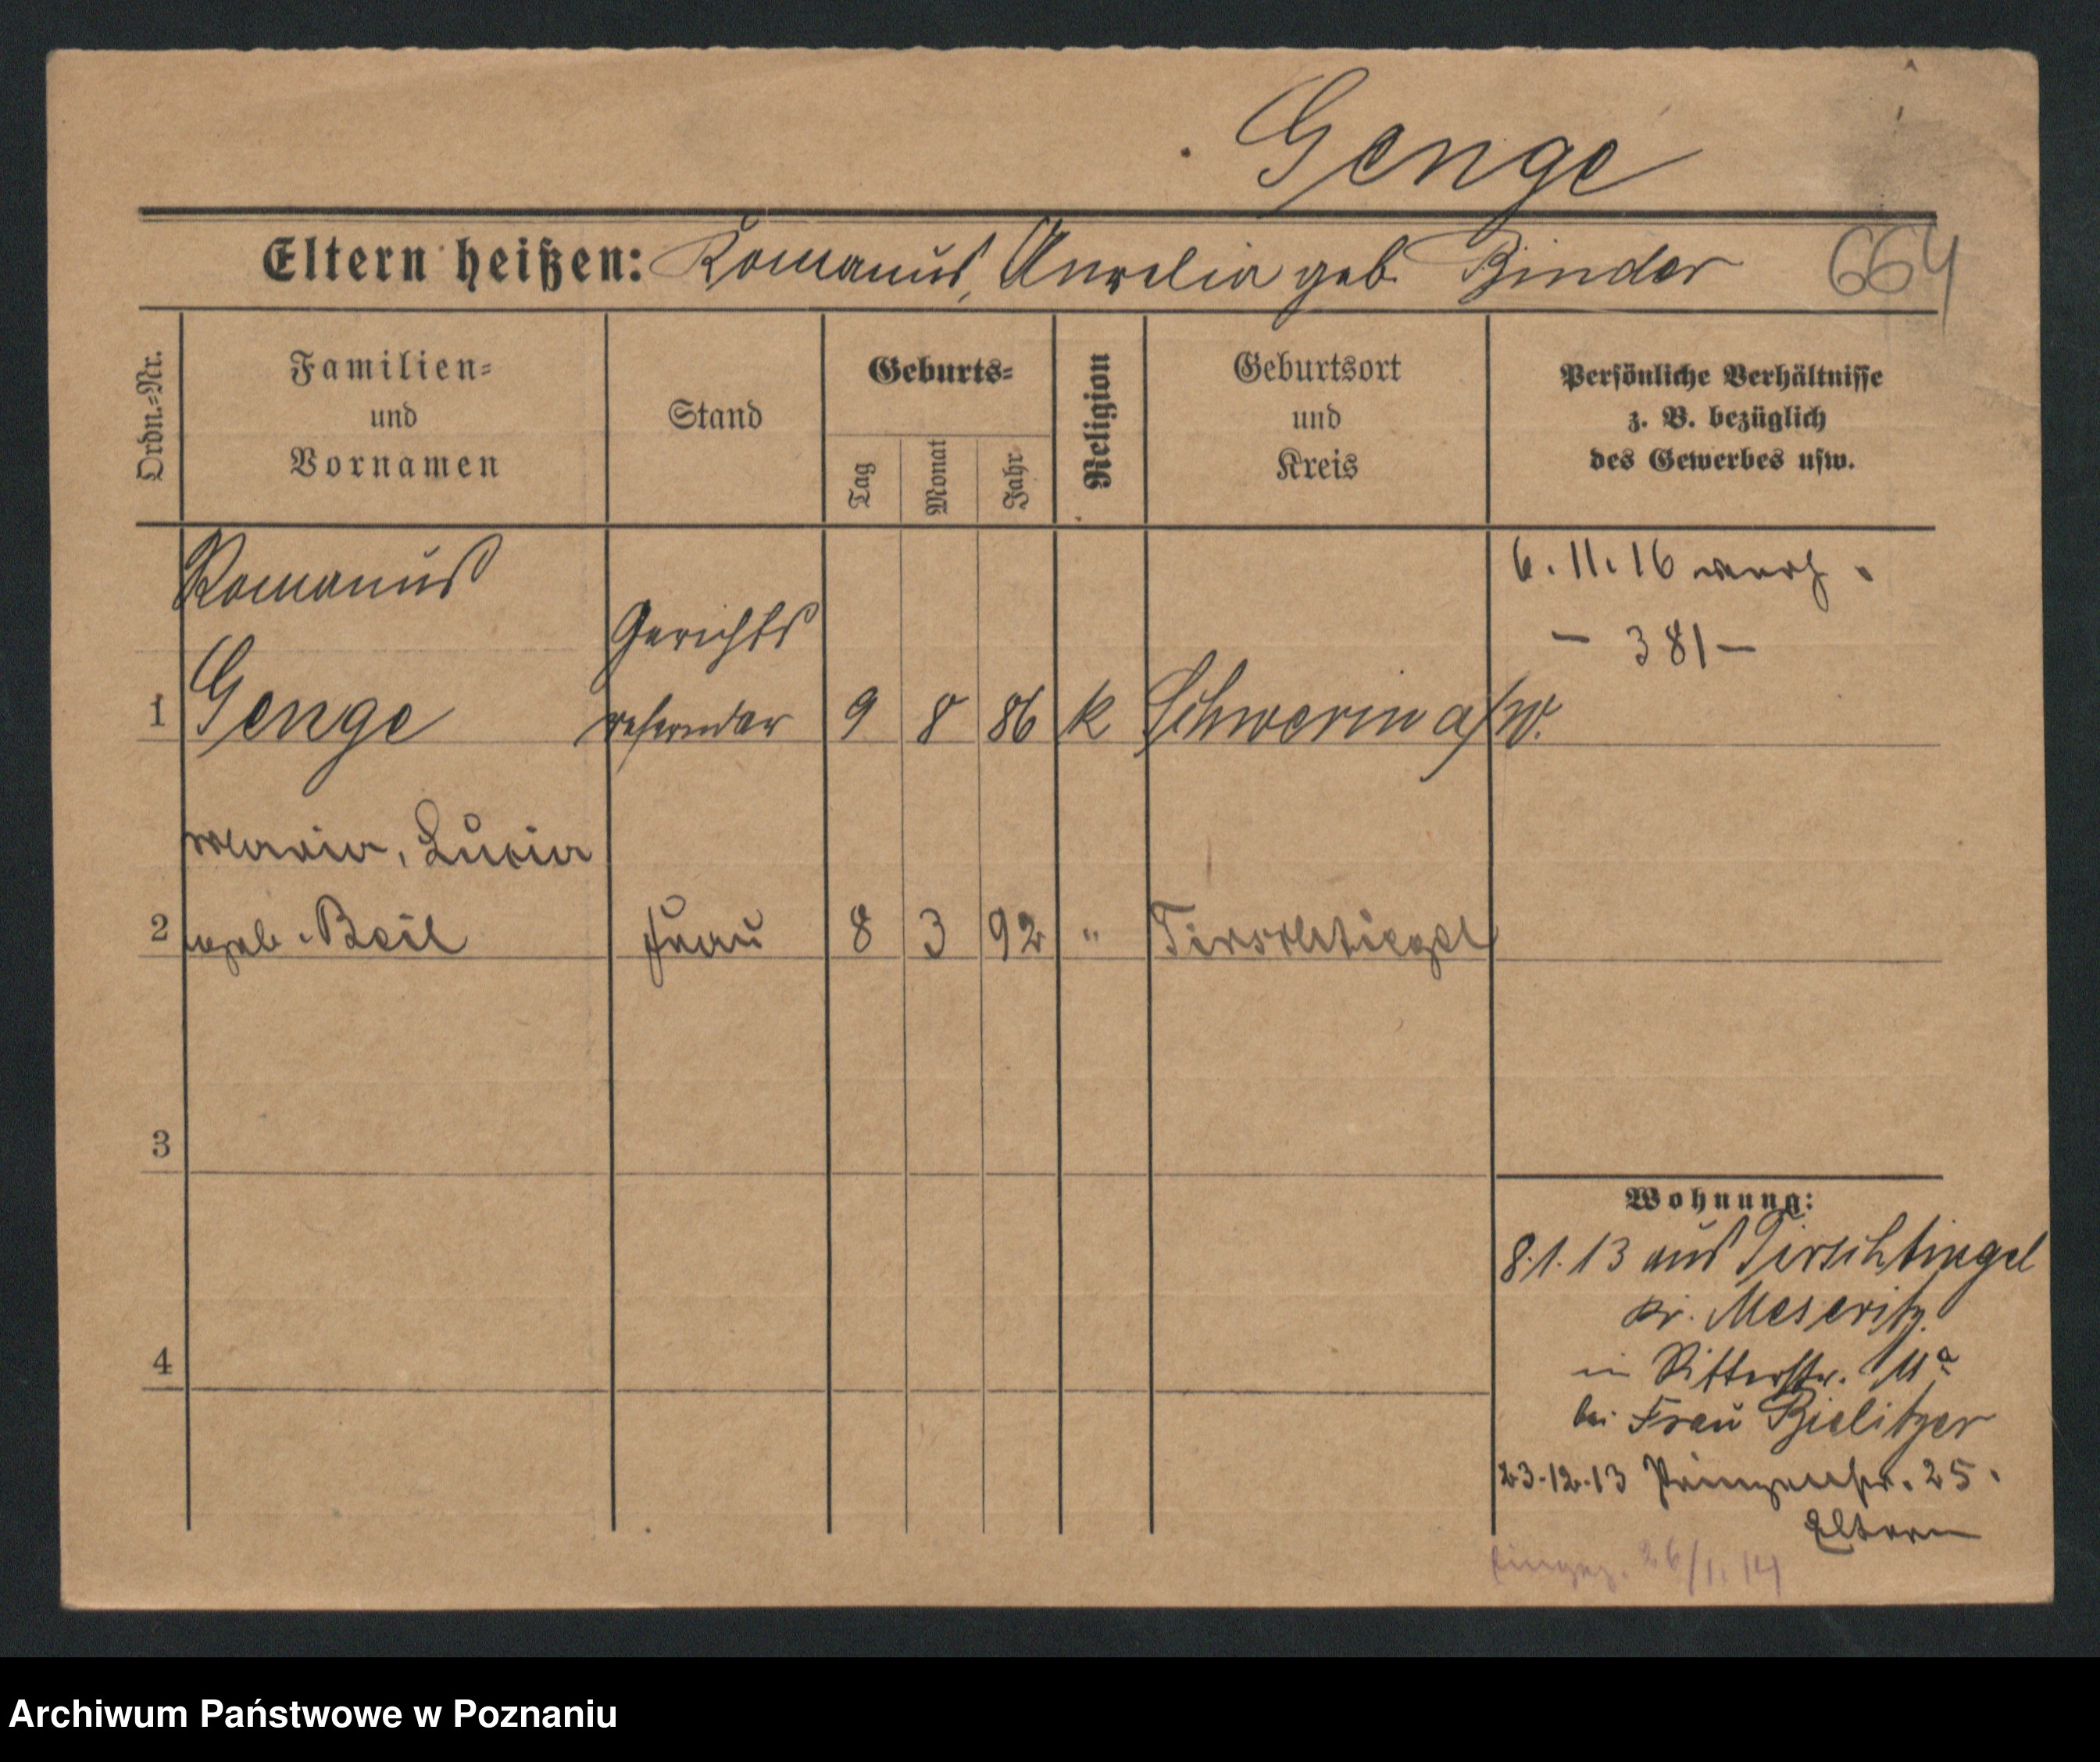 Genge
Eltern heißen: Romanus, Aurelia geb. Binder 664
Ordn.=Nr.
Familien=
und
Vornamen
Stand
Geburts=
Tag
Monat
Jahr
Religion
Geburtsort
und
Kreis
Persönliche Verhältnisse
z. B. bezüglich
des Gewerbes usw.
Romanus
Gerichts
1 Genge referendar 9 8 86 k Schwerin a/W.
6. 11. 16
– 381 –
Maria, Lucia
2 geb. Beil Frau 8 3 92 " Tirschtiegel
3
4
Wohnung:
8.1.13 aus Tirschtiegel
Kr. Meseritz.
in Ritterstr. 11a
bei Frau Bielitzer
23.12.13 Prinzenstr. 25.
Eltern
eingez. 26/1.14
Archiwum Państwowe w Poznaniu